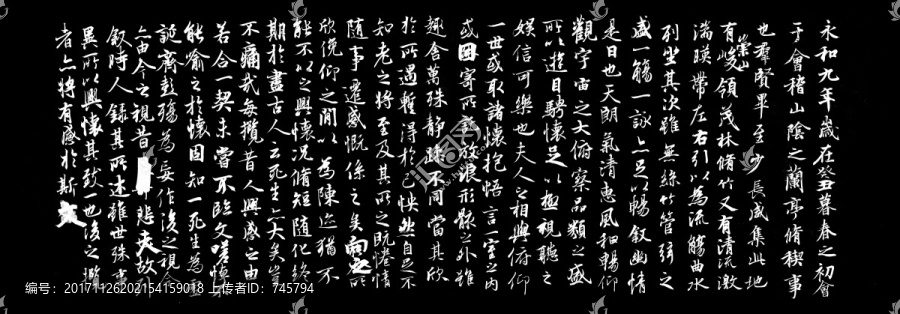 永和九年歲在癸丑暮春之初會
于會稽山陰之蘭亭脩稧事
也羣賢畢至少長咸集此地
有崇山峻領茂林脩竹又有清流激
湍暎帶左右引以為流觴曲水
列坐其次雖無絲竹管弦之
盛一觴一詠亦足以暢敘幽情
是日也天朗氣清惠風和暢仰
觀宇宙之大俯察品類之盛
所以遊目騁懷足以極視聽之
娛信可樂也夫人之相與俯仰
一世或取諸懷抱悟言一室之內
或因寄所託放浪形骸之外雖
趣舍萬殊靜躁不同當其欣
於所遇暫得於己怏然自足不
知老之將至及其所之既惓情
隨事遷感慨係之矣向之所
欣俛仰之閒以為陳迹猶不
能不以之興懷況脩短隨化終
期於盡古人云死生亦大矣豈
不痛哉每攬昔人興感之由
若合一契未嘗不臨文嗟悼不
能喻之於懷固知一死生為虛
誕齊彭殤為妄作後之視今
亦由今之視昔悲夫故
敘時人錄其所述雖世殊事
異所以興懷其致一也後之攬
者亦將有感於斯文
编号:20171126203154159018 上传者ID:745794